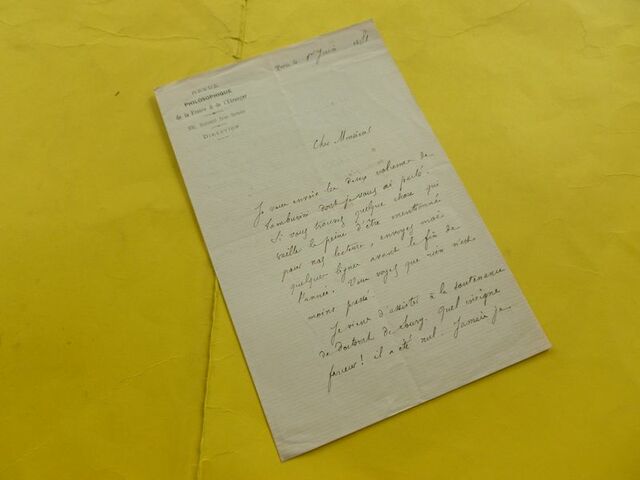 REVUE
PHILOSOPHIQUE
de la France & de l'Étranger
DIRECTION
Paris le 1er Juin
Cher Monsieur
Je vous envoie les deux volumes de
dont je vous ai parlé.
Si vous trouvez quelque chose qui
vaille la peine d'être mentionné
pour nos lecteurs, envoyez moi
quelques lignes avant la fin de
l'année. Vous voyez que rien n'est
moins pressé.
Je viens d'assister à la soutenance
de doctorat de Quel insigne
farceur! il a été nul. Jamais je